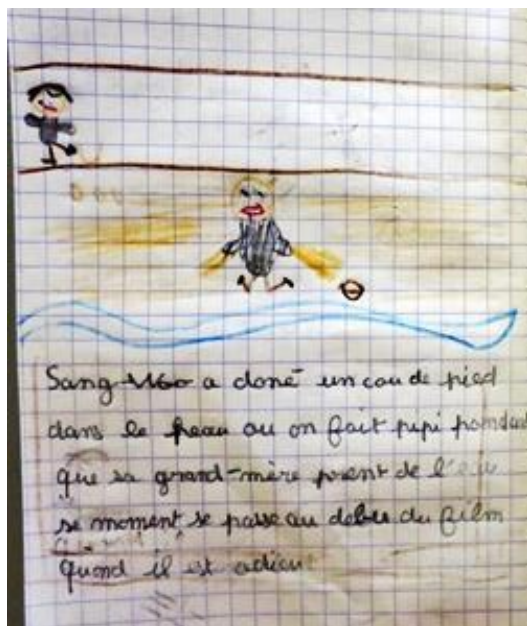 Sang-Woo a doné un cou de pied
dans le peau ou on fait pipi pandant
que sa grand-mère prent de l'eau
se moment se passe au debu du film
quand il est